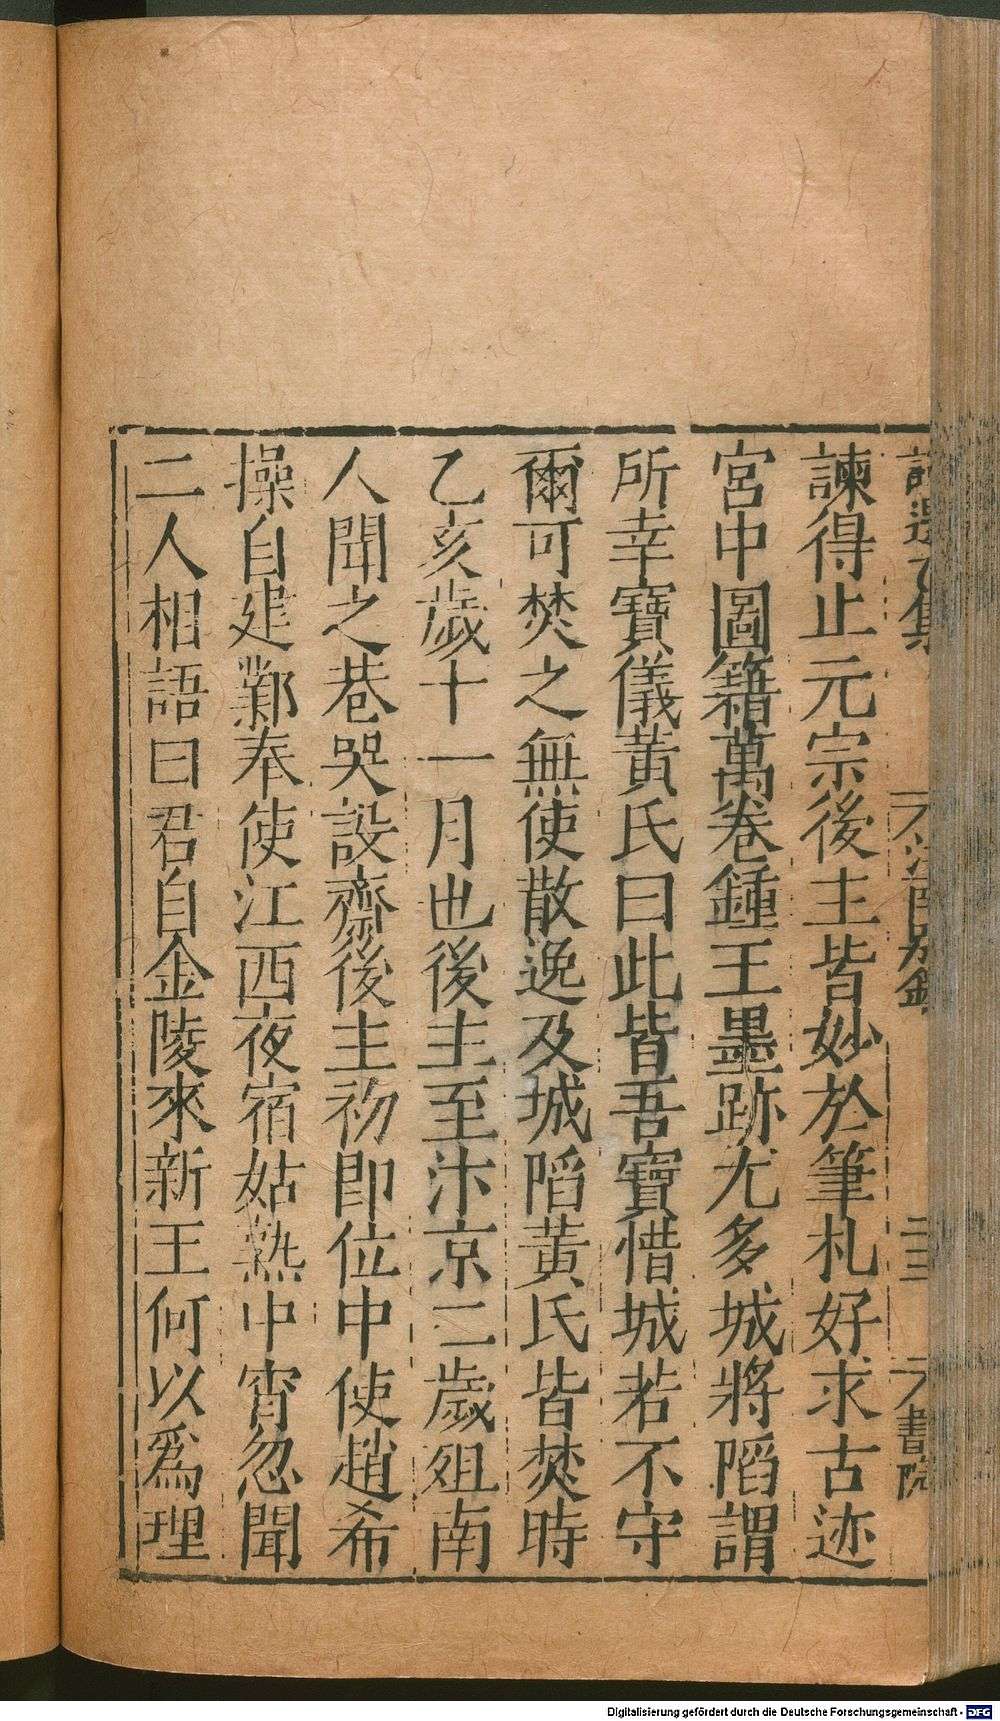 說選乙集
江南別錄
二三
書院
諫得止元宗後主皆妙於筆札好求古迹
宮中圖籍萬卷鍾王墨跡尤多城將陷謂
所幸寶儀黃氏曰此皆吾寶惜城若不守
爾可焚之無使散逸及城陷黃氏皆焚時
乙亥歲十一月也後主至汴京二歲殂南
人聞之巷哭設齋後主初即位中使趙希
操自建鄴奉使江西夜宿姑熟中宵忽聞
二人相語曰君自金陵來新王何以爲理
Digitalisierung gefördert durch die Deutsche Forschungsgemeinschaft - DFG